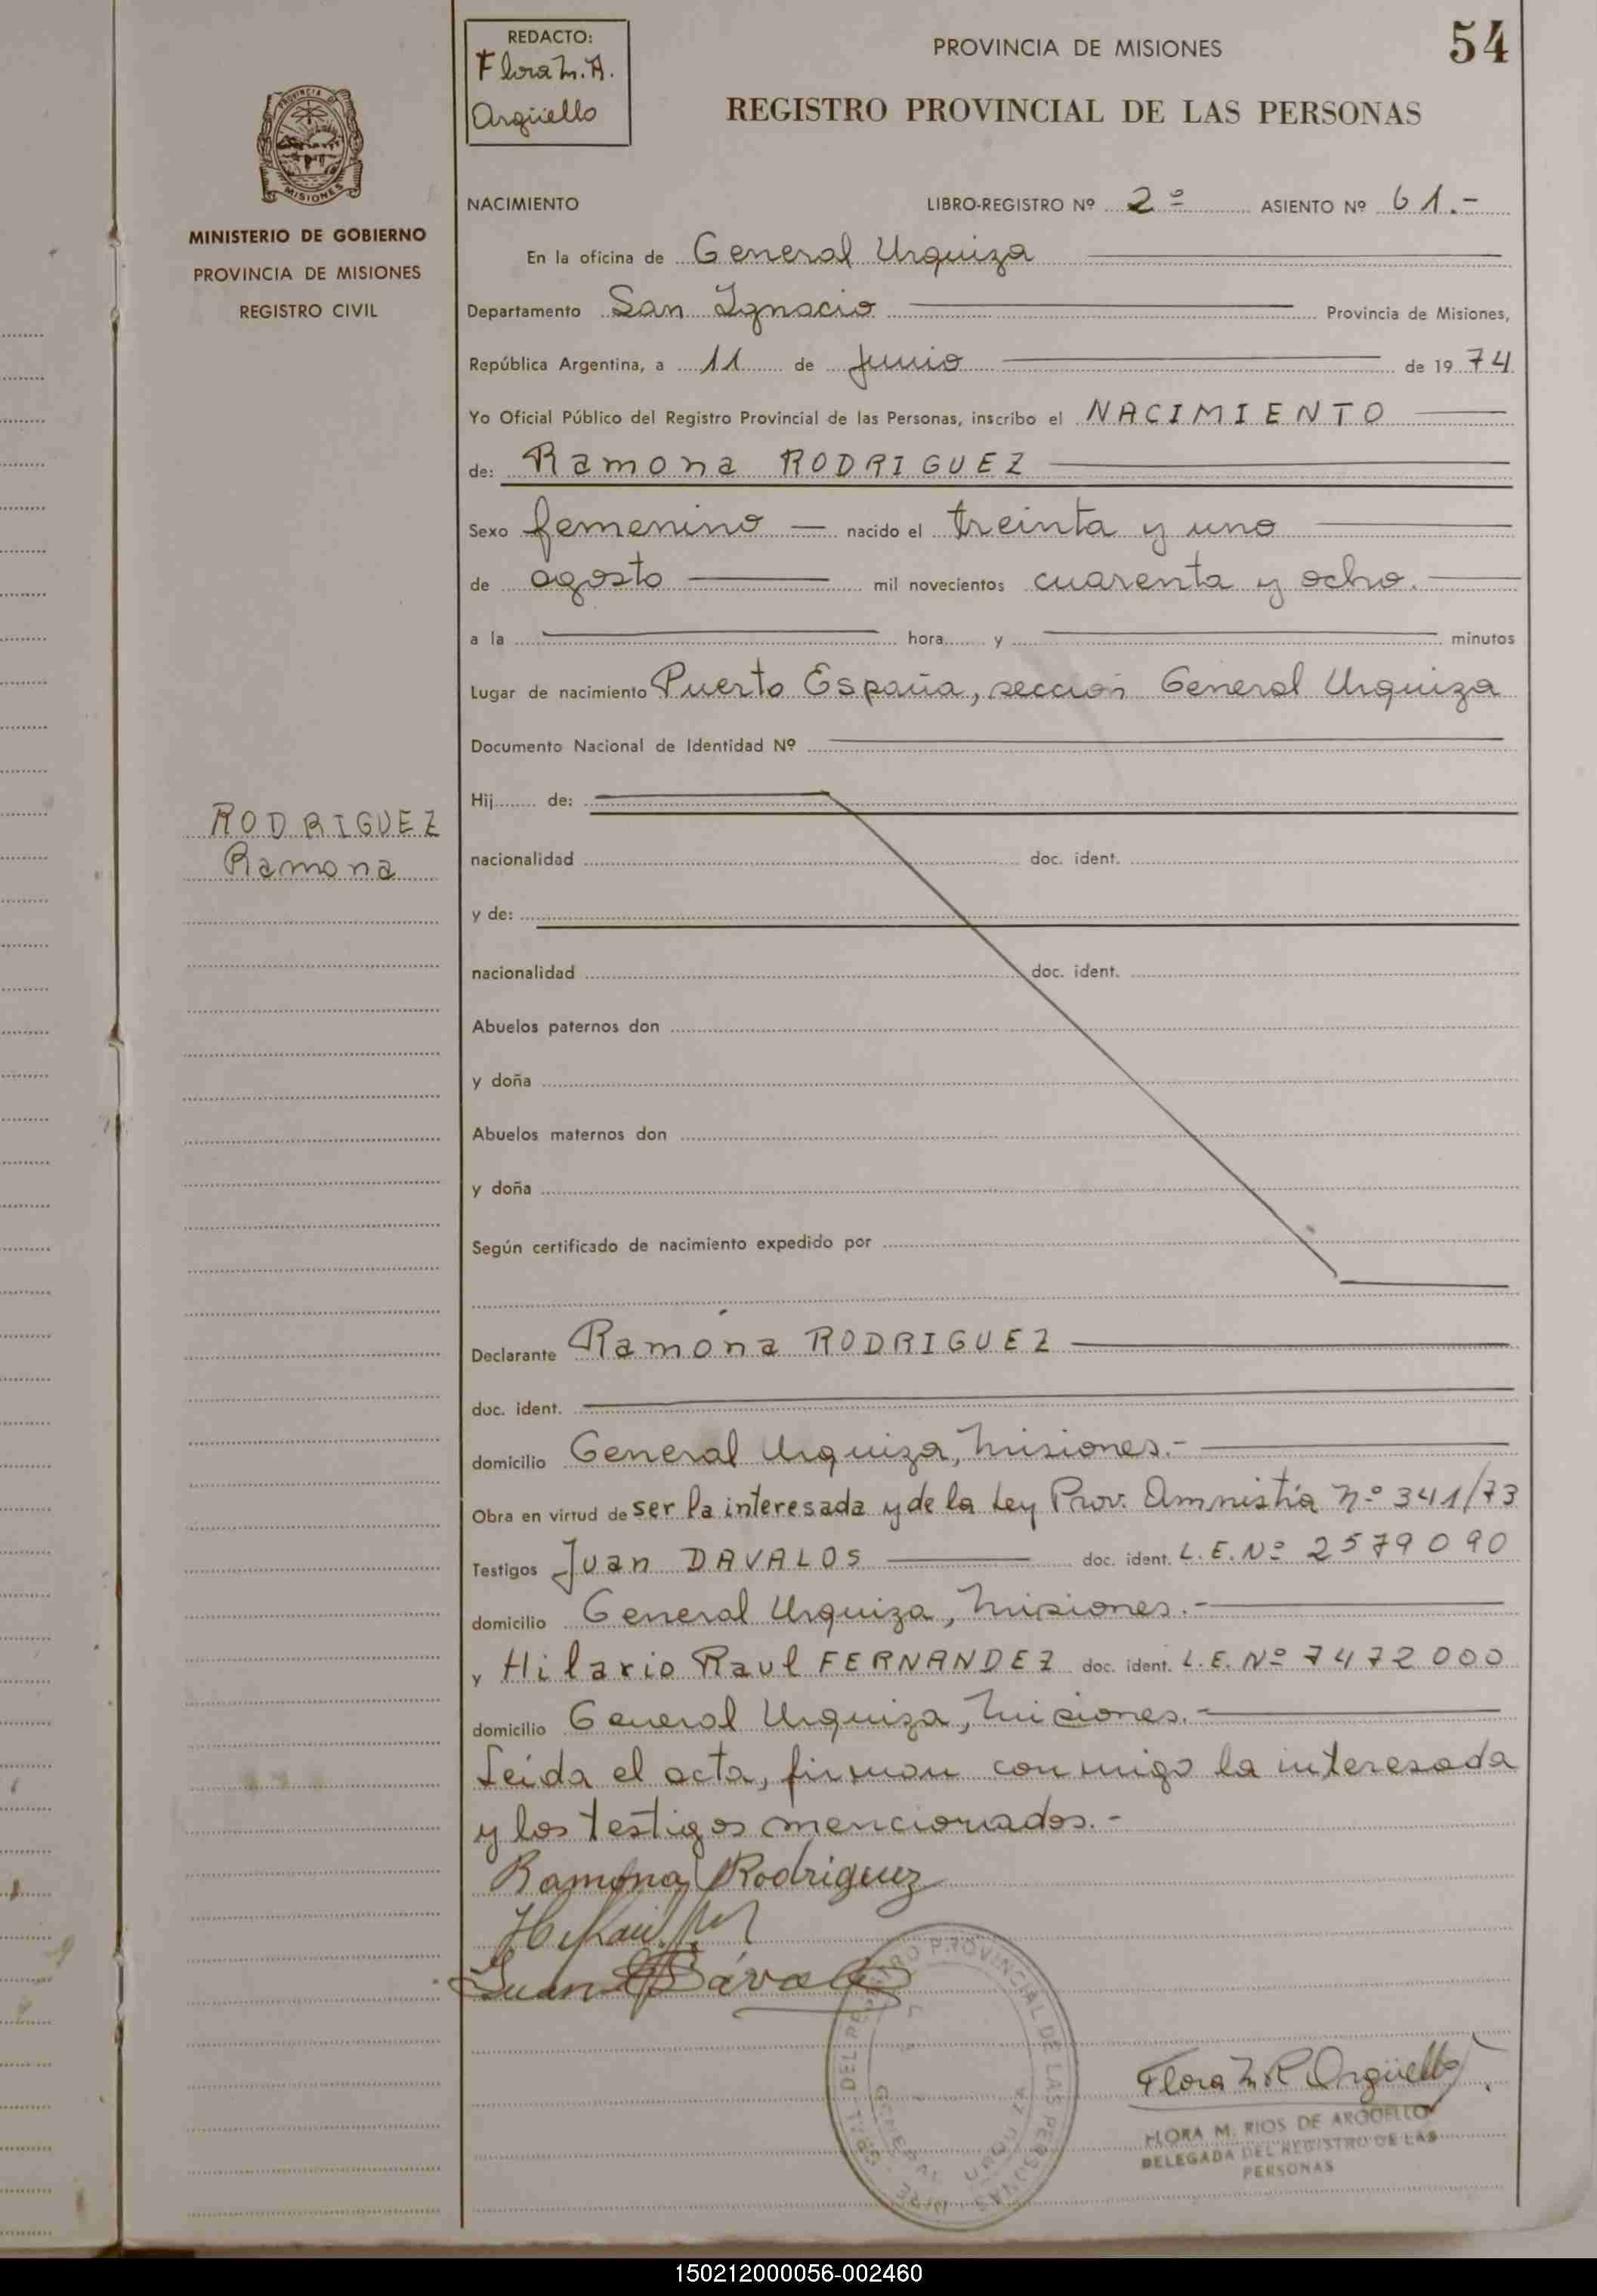 REDACTO:
Flora M. A.
Argüello
PROVINCIA DE MISIONES
54
REGISTRO PROVINCIAL DE LAS PERSONAS
PROVINCIA DE
MISIONES
MINISTERIO DE GOBIERNO
PROVINCIA DE MISIONES
REGISTRO CIVIL
NACIMIENTO LIBRO-REGISTRO Nº 2º ASIENTO Nº 61.-
En la oficina de General Urquiza
Departamento San Ignacio Provincia de Misiones,
República Argentina, a 11 de junio de 1974
Yo Oficial Público del Registro Provincial de las Personas, inscribo el NACIMIENTO
de: Ramona RODRIGUEZ
Sexo femenino — nacido el treinta y uno
de agosto mil novecientos cuarenta y ocho.
a la hora y minutos
Lugar de nacimiento Puerto España, sección General Urquiza
Documento Nacional de Identidad Nº
Hij de:
RODRIGUEZ
Ramona
nacionalidad doc. ident.
y de:
nacionalidad doc. ident.
Abuelos paternos don
y doña
Abuelos maternos don
y doña
Según certificado de nacimiento expedido por
Declarante Ramona RODRIGUEZ
doc. ident.
domicilio General Urquiza, Misiones.-
Obra en virtud de ser la interesada y de la Ley Prov. Amnistía Nº 341/73
Testigos Juan DAVALOS doc. ident. L.E. Nº 2579090
domicilio General Urquiza, Misiones.-
y Hilario Raul FERNANDEZ doc. ident. L.E. Nº 7472000
domicilio General Urquiza, Misiones.-
Leída el acta, firman conmigo la interesada
y los testigos mencionados.-
Ramona Rodriguez
Juan Dávalos
DEL REGISTRO PROVINCIAL DE LAS PERSONAS
GENERAL URQUIZA
Flora M. R. Argüello
FLORA M. RIOS DE ARGUELLO
DELEGADA DEL REGISTRO DE LAS
PERSONAS
150212000056-002460